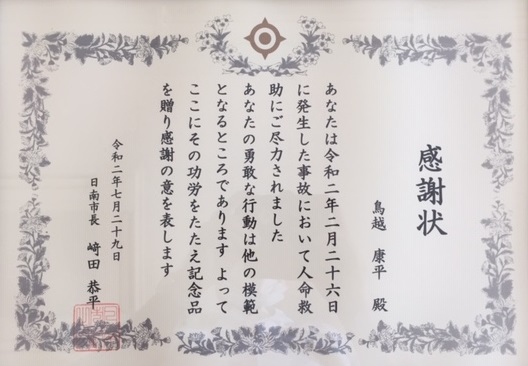 感謝状
鳥越 康平 殿
あなたは令和二年二月二十六日
に発生した事故において人命救
助にご尽力されました
あなたの勇敢な行動は他の模範
となるところであります よって
ここにその功労をたたえ記念品
を贈り感謝の意を表します
令和二年七月二十九日
日南市長 﨑田 恭平